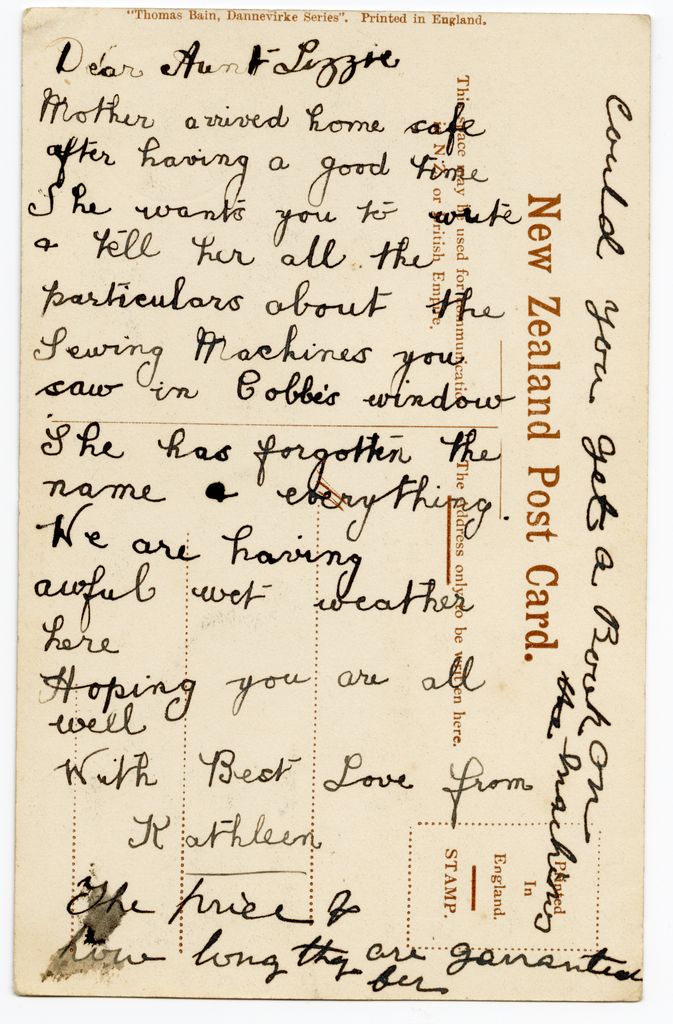 "Thomas Bain, Dannevirke Series". Printed in England.
Dear Aunt Lizzie
Mother arrived home safe
after having a good time
She wants you to write
& tell her all the
particulars about the
Sewing Machines you
saw in Cobbe's window
She has forgotten the
name & everything.
We are having
awful wet weather
here
Hoping you are all
well
With Best Love from
Kathleen
The price &
how long thy are garranted
for
Could you get a Book on
the machines
New Zealand Post Card.
This space may be used for communication
in N.Z. or British Empire.
The address only to be written here.
Printed
In
England.
STAMP.